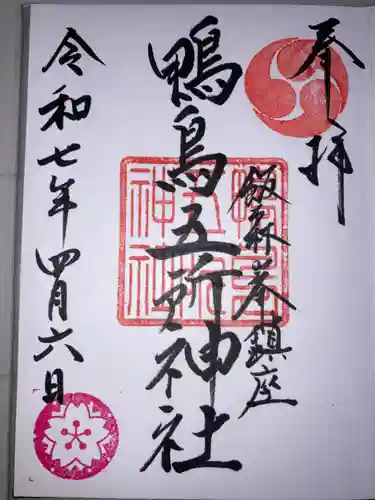 奉拝
飯森峯鎮座
鴨鳥五所神社
令和七年四月六日
鴨鳥
五所
神社